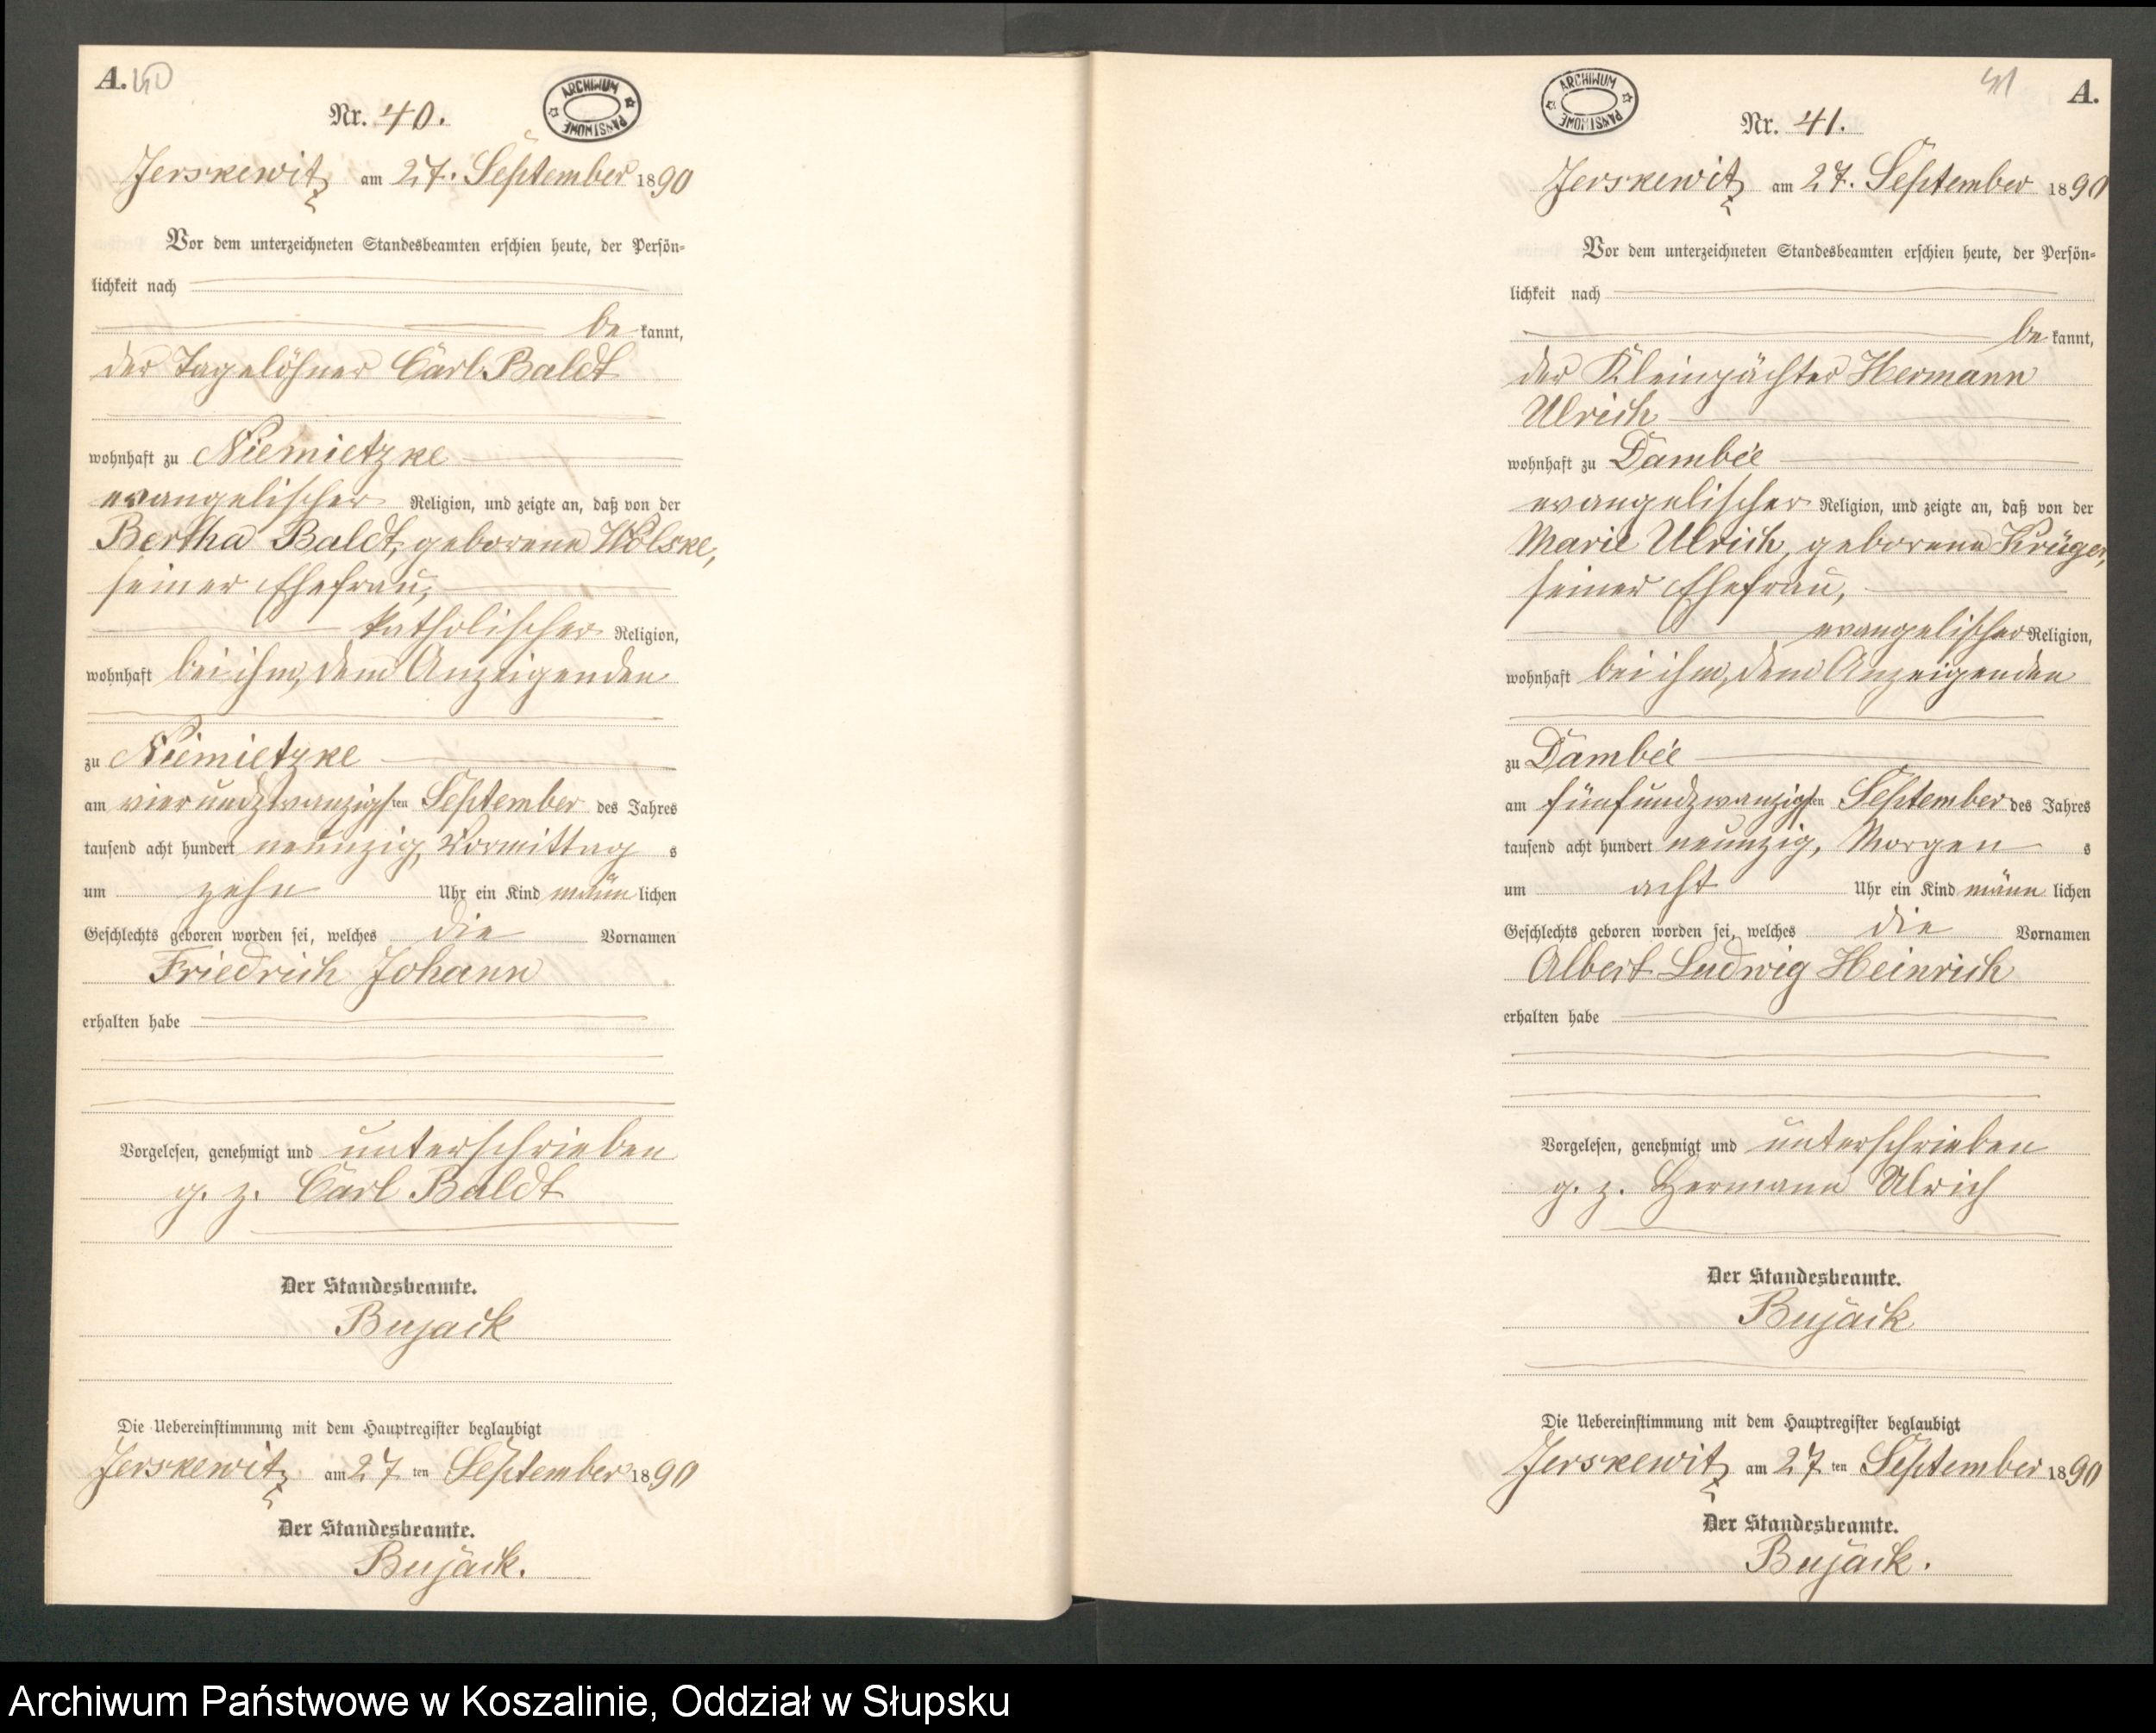 A. 40
ARCHIWUM PAŃSTWOWE
Nr. 40.
Jerskewitz am 27. September 1890
Vor dem unterzeichneten Standesbeamten erschien heute, der Persön-
lichkeit nach
be kannt,
der Tagelöhner Carl Baldt
wohnhaft zu Niemietzke
evangelischer Religion, und zeigte an, daß von der
Bertha Baldt, geborene Wolske,
seiner Ehefrau,
katholischer Religion,
wohnhaft bei ihm, dem Anzeigenden
zu Niemietzke
am vierundzwanzigsten September des Jahres
tausend acht hundert neunzig Vormittag s
um zehn Uhr ein Kind männlichen
Geschlechts geboren worden sei, welches die Vornamen
Friedrich Johann
erhalten habe
Vorgelesen, genehmigt und unterschrieben
g. z. Carl Baldt
Der Standesbeamte.
Bujack
Die Uebereinstimmung mit dem Hauptregister beglaubigt
Jerskewitz am 27 ten September 1890
Der Standesbeamte.
Bujack.
41 A.
ARCHIWUM PAŃSTWOWE
Nr. 41.
Jerskewitz am 27. September 1890
Vor dem unterzeichneten Standesbeamten erschien heute, der Persön-
lichkeit nach
be kannt,
der Kleinpächter Hermann
Ulrich
wohnhaft zu Dambée
evangelischer Religion, und zeigte an, daß von der
Marie Ulrich, geborene Krüger,
seiner Ehefrau,
evangelischer Religion,
wohnhaft bei ihm, dem Anzeigenden
zu Dambée
am fünfundzwanzigsten September des Jahres
tausend acht hundert neunzig, Morgen s
um acht Uhr ein Kind männ lichen
Geschlechts geboren worden sei, welches die Vornamen
Albert Ludwig Heinrich
erhalten habe
Vorgelesen, genehmigt und unterschrieben
g. z. Hermann Ulrich
Der Standesbeamte.
Bujack
Die Uebereinstimmung mit dem Hauptregister beglaubigt
Jerskewitz am 27 ten September 1890
Der Standesbeamte.
Bujack.
Archiwum Państwowe w Koszalinie, Oddział w Słupsku